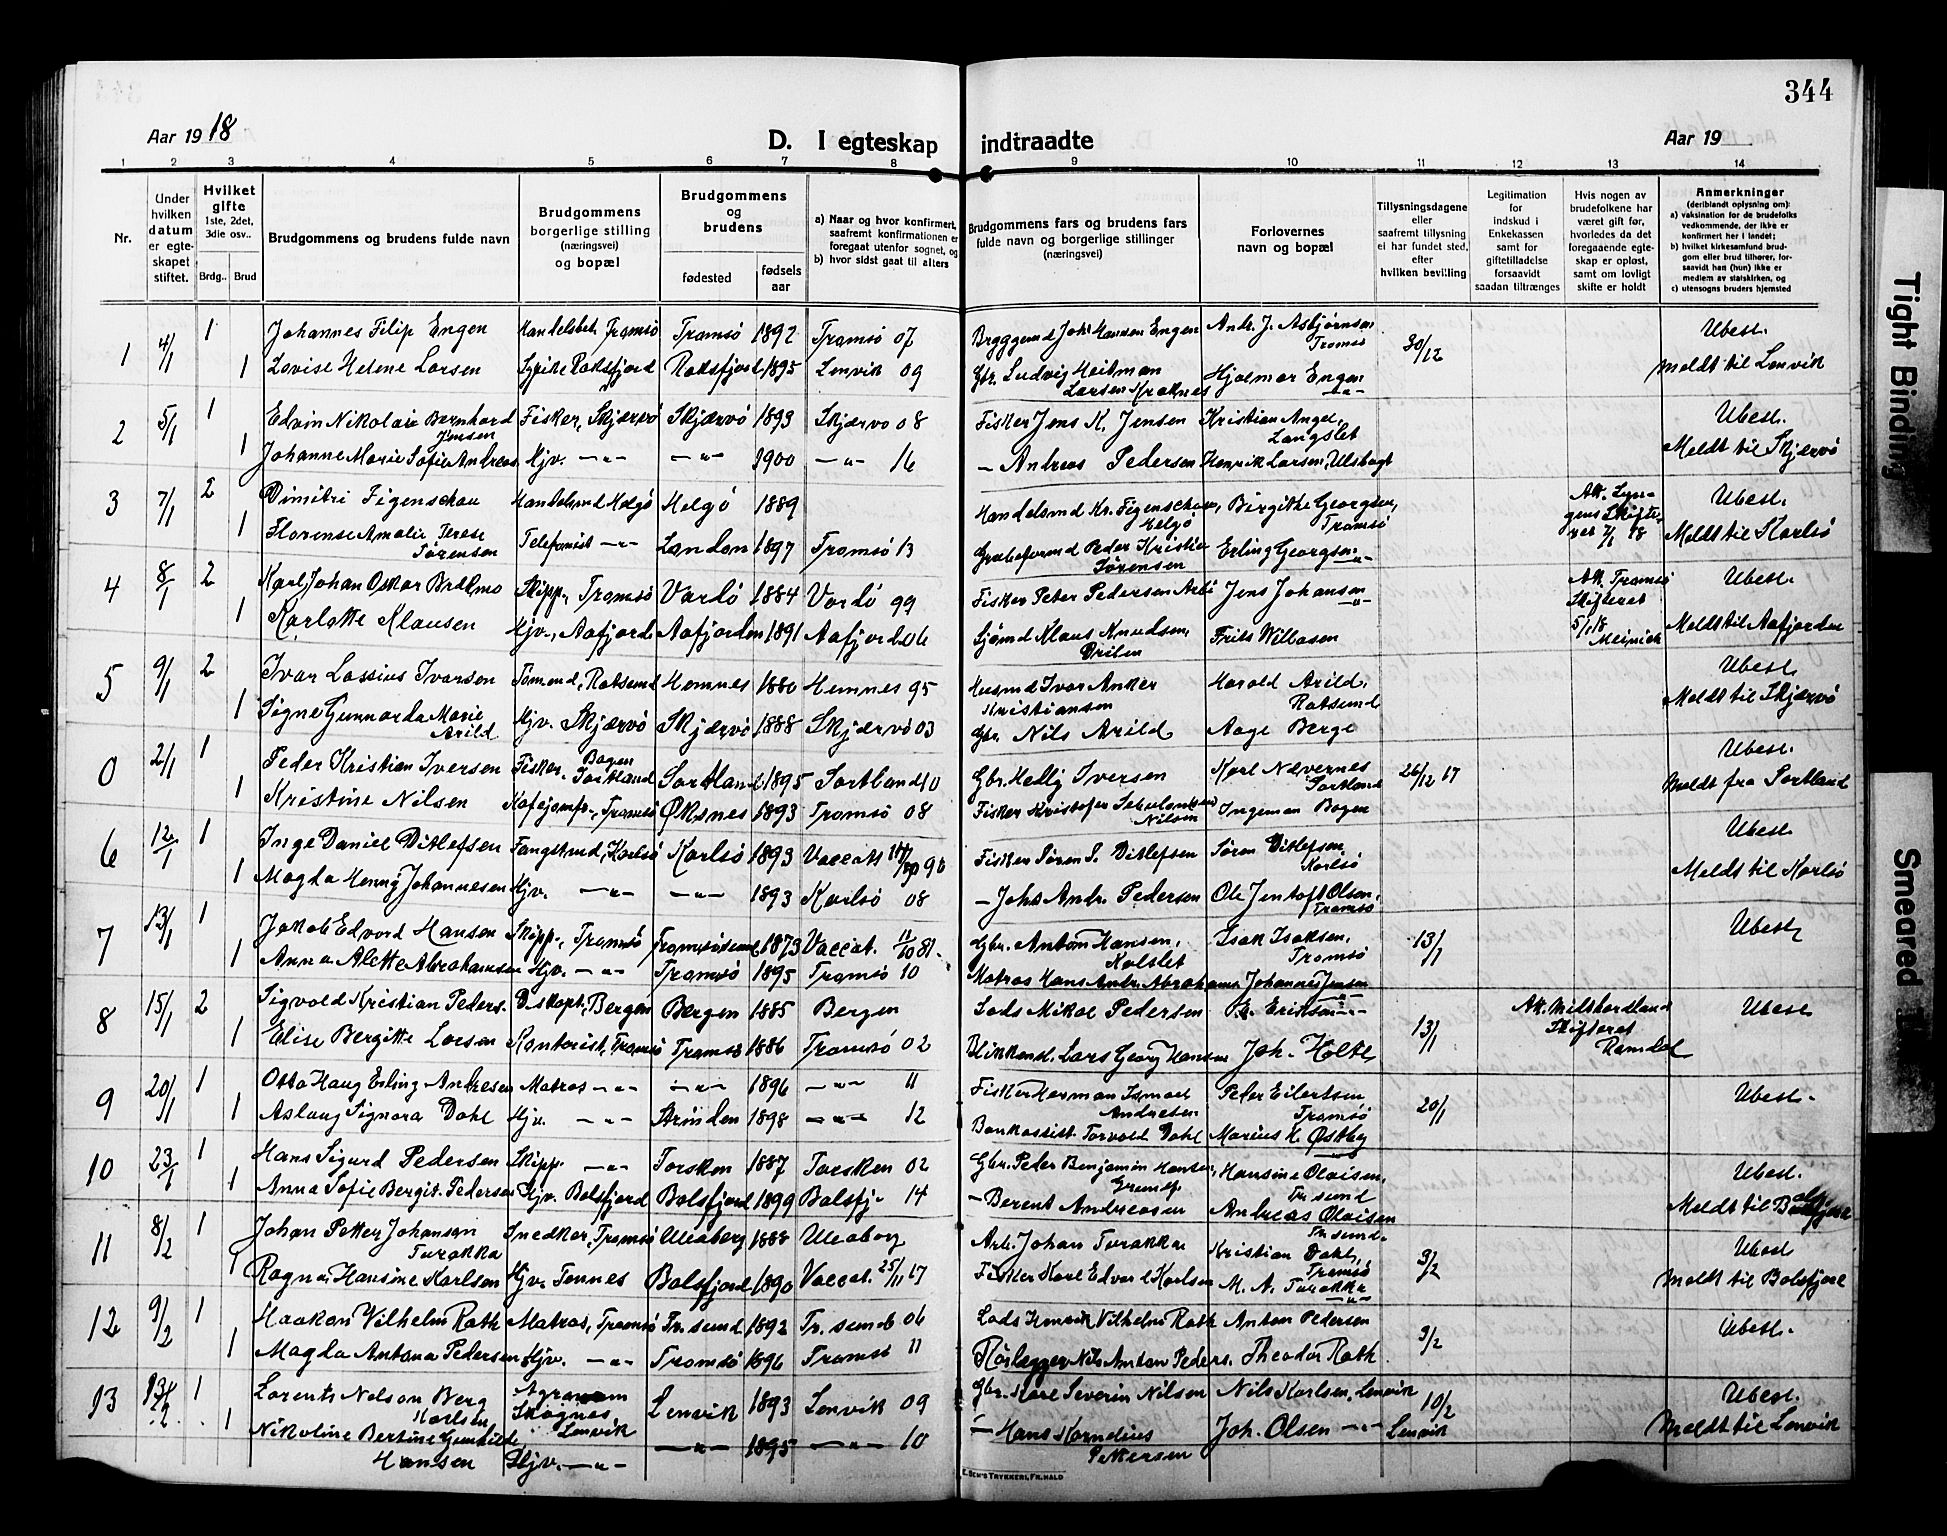 344
Aar 1918
D. I egteskap
indtraadte
Aar 19
1 2 3 4 5 6 7 8 9 10 11 12 13 14
Nr.
Under hvilken datum er egteskapet stiftet.
Hvilket gifte
1ste, 2det, 3die osv..
Brdg. Brud
Brudgommens og brudens fulde navn
Brudgommens borgerlige stilling (næringsvei) og bopæl
Brudgommens og brudens
fødested
fødsels aar
a) Naar og hvor konfirmert, saafremt konfirmationen er foregaat utenfor sognet, og
b) hvor sidst gaat til alters
Brudgommens fars og brudens fars fulde navn og borgerlige stillinger (næringsvei)
Forlovernes navn og bopæl
Tillysningsdagene eller saafremt tillysning ei har fundet sted, efter hvilken bevilling
Legitimation for indskud i Enkekassen samt for giftetilladelse forsaavidt saadan tiltrænges
Hvis nogen av brudefolkene har været gift før, hvorledes da det foregaaende egteskap er opløst, samt om lovligt skifte er holdt
Anmerkninger
(deriblandt oplysning om):
a) vaksination for de brudefolks vedkommende, der ikke er konfirmert her i landet;
b) hvilket kirkesamfund brudgom eller brud tilhører, forsaavidt han (hun) ikke er medlem av statskirken, og
c) utensogns bruders hjemsted
1 4/1 1 Johannes Filip Engen Handelsbet. Tromsö Tromsö 1892 Tromsö 07 Bryggemd Johs Hansen Engen Andr. J. Asbjørnsen Tromsö 30/12 Ubesl.
1 Lovise Helene Larsen Syerske Raksfjord Raksfjord 1895 Lenvik 09 Gbr. Ludvig Heitman Larsen Kraknes Hjalmar Engen —"— Meldt til Lenvik
2 5/1 1 Edvin Nikolai Bernhard Jensen Fisker, Skjærvö Skjærvö 1893 Skjærvö 08 Fisker Jens K. Jensen Kristian Angel, Langslet Ubesl.
1 Johanne Marie Sofie Andreas. Hjv. —"— —"— 1900 —"— 16 — Andreas Pedersen Henrik Larsen, Ulsbagt Meldt til Skjervö
3 7/1 2 Dimitri Figenschau Handelsmd Helgö Helgö 1889 Handelsmd Kr. Figenschau Helgö Birgithe Georgsen, Tromsö Att. Lyngens Skifteret 7/1 18 Ubesl.
1 Florense Amalie Terese Sørensen Telefonist —"— London 1897 Tromsö 13 Peder Kristian Sørensen Erling Georgsen —"— Meldt til Karlsö
4 8/1 2 Karl Johan Oskar Skipp., Tromsö Vardö 1884 Vardö 99 Fisker Peter Pedersen Jens Johansen —"— Att. Tromsö Skifteret 5/1 18 Ubesl.
1 Karlotte Klausen Hjv., Aafjord Aafjorden 1891 Aafjord 06 Sjømd Klaus Knudsen, Frits Wilbasen Meldt til Aafjorden
5 9/1 2 Ivar Lassius Ivarsen Tømmd, Rotsund Hemnes 1880 Hemnes 95 Husmd Ivar Anker Kristiansen Harald Arild, Rotsund Ubesl.
1 Signe Gunnarda Marie Arild Hjv. Skjærvö Skjærvö 1888 Skjærvö 03 Gbr. Nils Arild Aage Berge Meldt til Skjærvö
0 2/1 1 Peder Kristian Iversen Fisker, Bogen Sortland Sortland 1895 Sortland 10 Gbr. Iversen Karl Nævernes Sortland 26/12 17 Ubesl.
1 Kristine Nilsen Kafejomfr., Tromsö Øksnes 1893 Tromsö 08 Fisker Kristofer Nilsen Ingeman Bogen Meldt fra Sortland
6 12/1 1 Inge Daniel Ditlefsen Fangstmd, Karlsö Karlsö 1893 Vaccatt Fisker Søren P. Ditlefsen Søren Ditlefsen, Karlsö Ubesl.
1 Magda Henny Johannesen Hjv. —"— —"— 1893 Karlsö 08 — Johs Andr. Pedersen Ole Jentoft Olsen, Tromsö Meldt til Karlsö
7 13/1 1 Jakob Edvard Hansen Skipp., Tromsö Tromsösund 1873 Vaccat. 11/10 81. Gbr. Anton Hansen, Kvalslet Isak Isaksen, Tromsö 13/1 Ubesl
1 Anna Alette Abrahamsen Hjv. —"— Tromsö 1895 Tromsö 10 Matros Hans Andr. Abrahams. Johannes Jensen —"—
8 15/1 2 Sigvald Kristian Peders. Bergen Bergen 1885 Bergen Lods Mikal Pedersen Eriksen —"— Att. Midthordland Skifteret Ramdal Ubesl
1 Elise Bergitte Larsen Kontorist, Tromsö Tromsö 1886 Tromsö 02 Blikkensl. Lars Georg Hansen Joh. Holte 13/1
9 20/1 1 Otto Haug Erling Andresen Matros —"— —"— 1896 —"— 11 Fisker Herman Ismael Andresen Peder Eilertsen Tromsö 20/1 Ubesl.
1 Aslaug Signora Dahl Hjv. —"— Strinden 1898 —"— 12 Bankassist. Torvald Dahl Marius K. Østby
10 23/1 1 Hans Sigurd Pedersen Skipp. —"— Torsken 1887 Torsken 02 Gbr. Peder Benjamin Hansen, Hansine Olaisen, Tr.sund Ubesl.
1 Anna Sofie Bergit. Pedersen Hjv. Balsfjord Balsfjord 1899 Balsfj. 14 — Berent Andreasen Andreas Olaisen Tr.sund. Meldt til Balsfjord
11 8/2 1 Johan Petter Johansen Turakka Snedker, Tromsö Uleaborg 1888 Uleaborg Arb. Johan Turakka Kristian Dahl, Tromsö 3/2 Ubesl
1 Ragna Hansine Karlsen Hjv. Tennes Balsfjord 1890 Vaccat. 25/11 17 Fisker Karl Edvard Karlsen M. A. Turakka —"— Meldt til Balsfjord
12 9/2 1 Haakon Vilhelm Rath Matros, Tromsö Tr.sund 1892 Tr.sund 06 Lods Henrik Vilhelm Rath Anton Pedersen 3/2 Ubesl.
1 Magda Antona Pedersen Hjv. —"— Tromsö 1896 Tromsö 11 Rørlægger Nils Anton Peders. Theodor Rath.
13 13/2 1 Lorents Nelson Berg Karlsen Skognes, Lenvik Lenvik 1893 Lenvik 09 Gbr. Karl Severin Nilsen Nils Karlsen, Lenvik 10/2 Lenvik Ubesl.
1 Nikoline Bertine Gunhilde Hansen Hjv. —"— —"— 1895 —"— 10 — Hans Kornelius Pettersen Joh. Olsen —"— Meldt til Lenvik
E. Sem's Trykkeri, Fr.hald
Tight Binding
Smeared